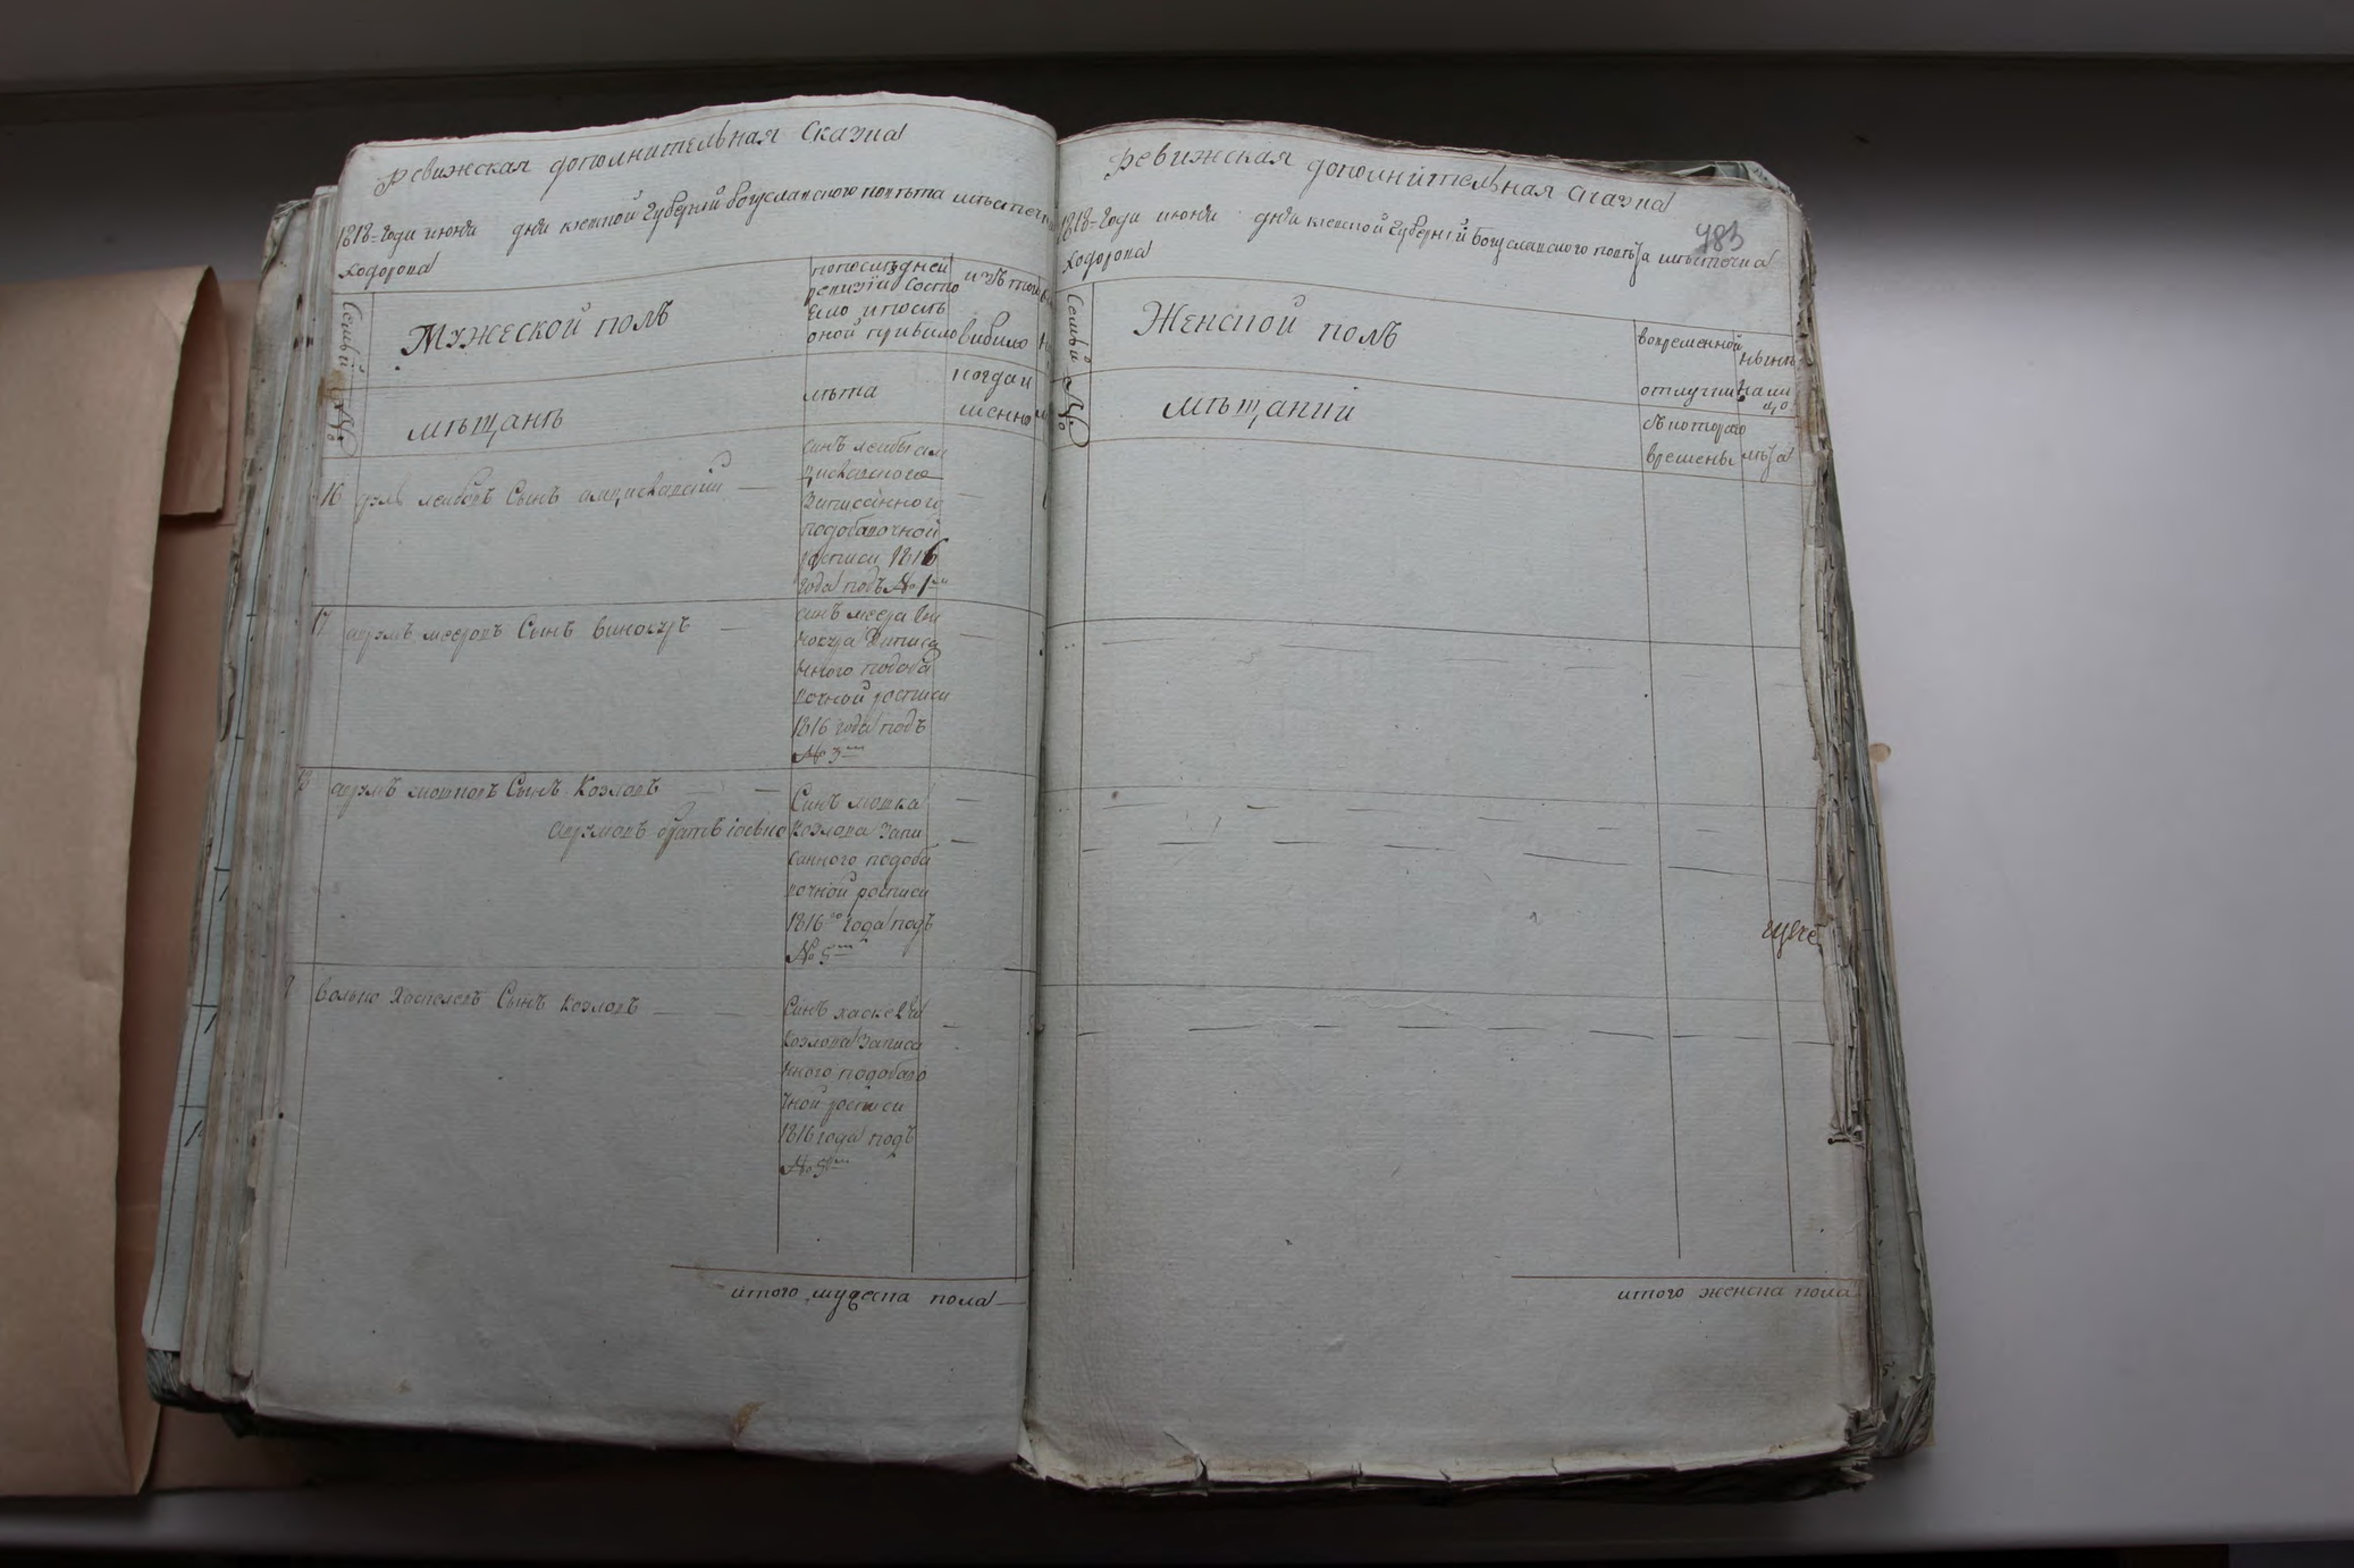 Ревижская дополнительная Сказка
1818=Года июня дня киевской Губерний богуславского повѣта мѣстечка
ходорова
Семьи №
Мужеской полъ
попослѣдней
ревизіи состо
яло ипослѣ
оной прибыло
изъ того
выбыло
мѣщанъ
лѣта
когда и
менно
16 лейбовъ Сынъ
синъ лейбы
записанного
подобавочной
росписи 1816
года подъ № 1м
17 аврумъ мееровъ Сынъ винокуръ
синъ меера ви
нокура записа
нного подоба
вочной росписи
1816 года подъ
№ 3м
аврумъ мошковъ Сынъ Козловъ
аврумовъ братъ
Синъ мошка
Козлова запи
санного подоба
вочной росписи
1816го года подъ
№ 5м
волько хаскелевъ Сынъ козловъ
Синъ хаскеля
козлова записа
нного подобаво
чной росписи
1816 года подъ
№ 5м
итого мужеска пола
Ревижская дополнительная сказка
483
1818=Года июня дня киевской Губерніи Богуславского повѣта мѣстечка
ходорова
Семьи №
Женской полъ
вовременной
отлучки
нынѣ
на ли
цо
мѣщанки
съ которого
времены
лѣта
итого женска пола